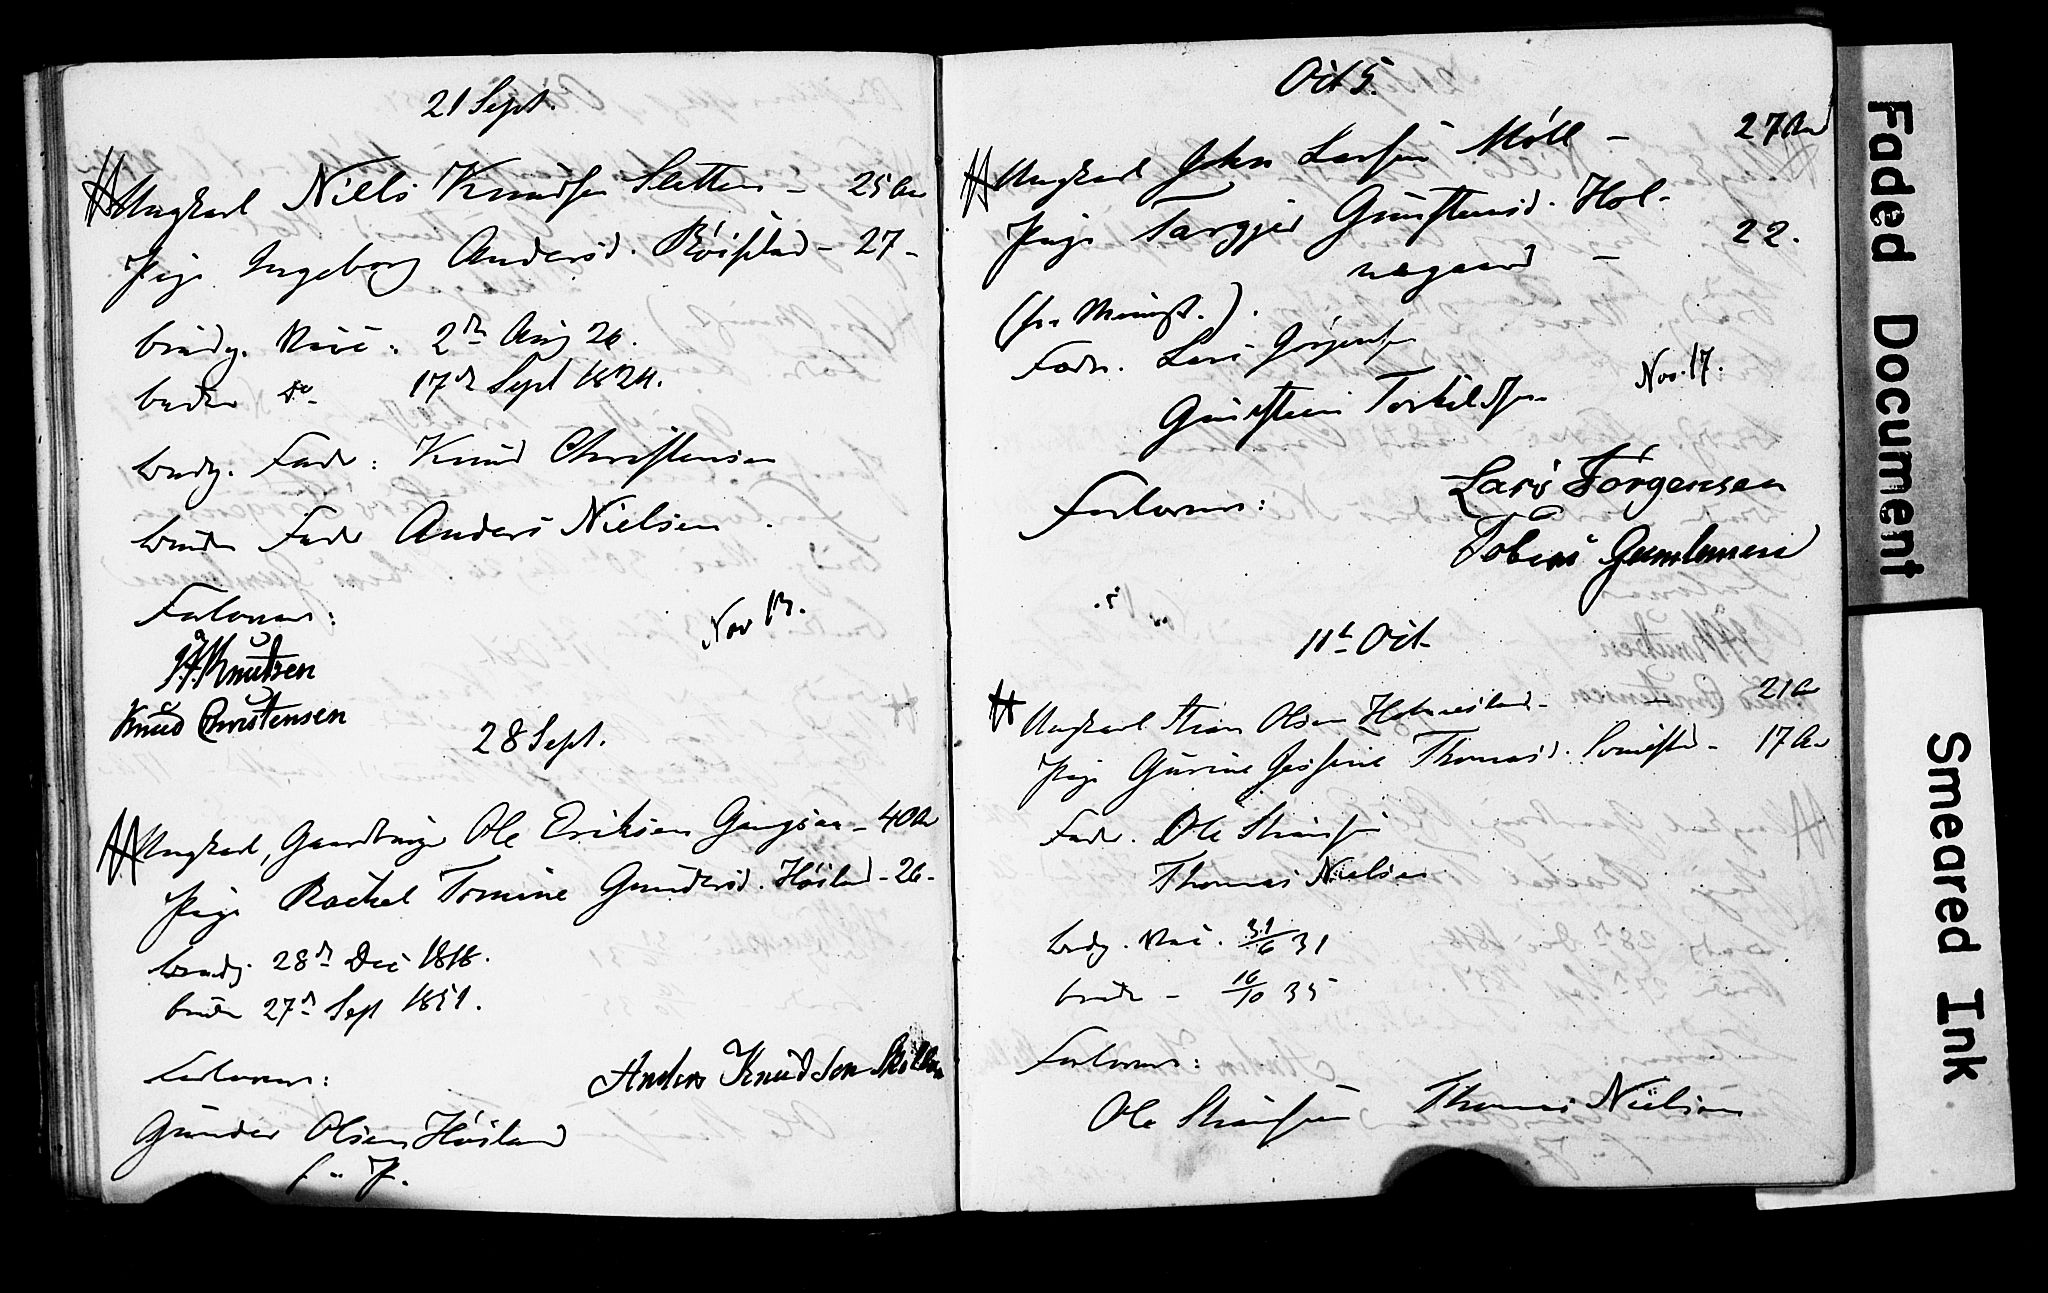 21 Sept.
Ungkarl Niels Knudsen Sletten - 25 Aar
Pige Ingeborg Andersd. Röistad - 27 -
brudg. Vacc: 2den Aug 26.
bruden do 17de Sept
brudg. Fader: Knud Christensen
bruden Fader Anders Nielsen
Forlovere:
Nov 13.
Knutsen
Knud Christensen
28 Sept.
Ungkarl, Gaardbruger Ole Eriksen - 40 Aar
Pige Rachel Tomine Gundersd. Höiland - 26 -
brudg. 28de Dec 1818.
bruden 27de Sept 1851.
Forlovere:
Anders Knudsen
Gunder Olsen Höiland
Oct 5.
Ungkarl John Larsen Möll - 27 Aar
Pige Targjer Gunsteensd. Hol-
negaard - 22.
Fader. Lars Jörgensen
Gunsteen Torkildsen
Nov. 17.
Forlovere:
Lars Jörgensen
Tobias
11te Oct.
Ungkarl Olsen - 21 Aar
Pige Gurine Thomasd. - 17 Aar
Fader. Ole
Thomas Nielsen
brudg. Vac. 31/6 31
bruden - 16/10 35
Forlovere:
Ole Thomas Nielsen
Faded Document
Smeared Ink